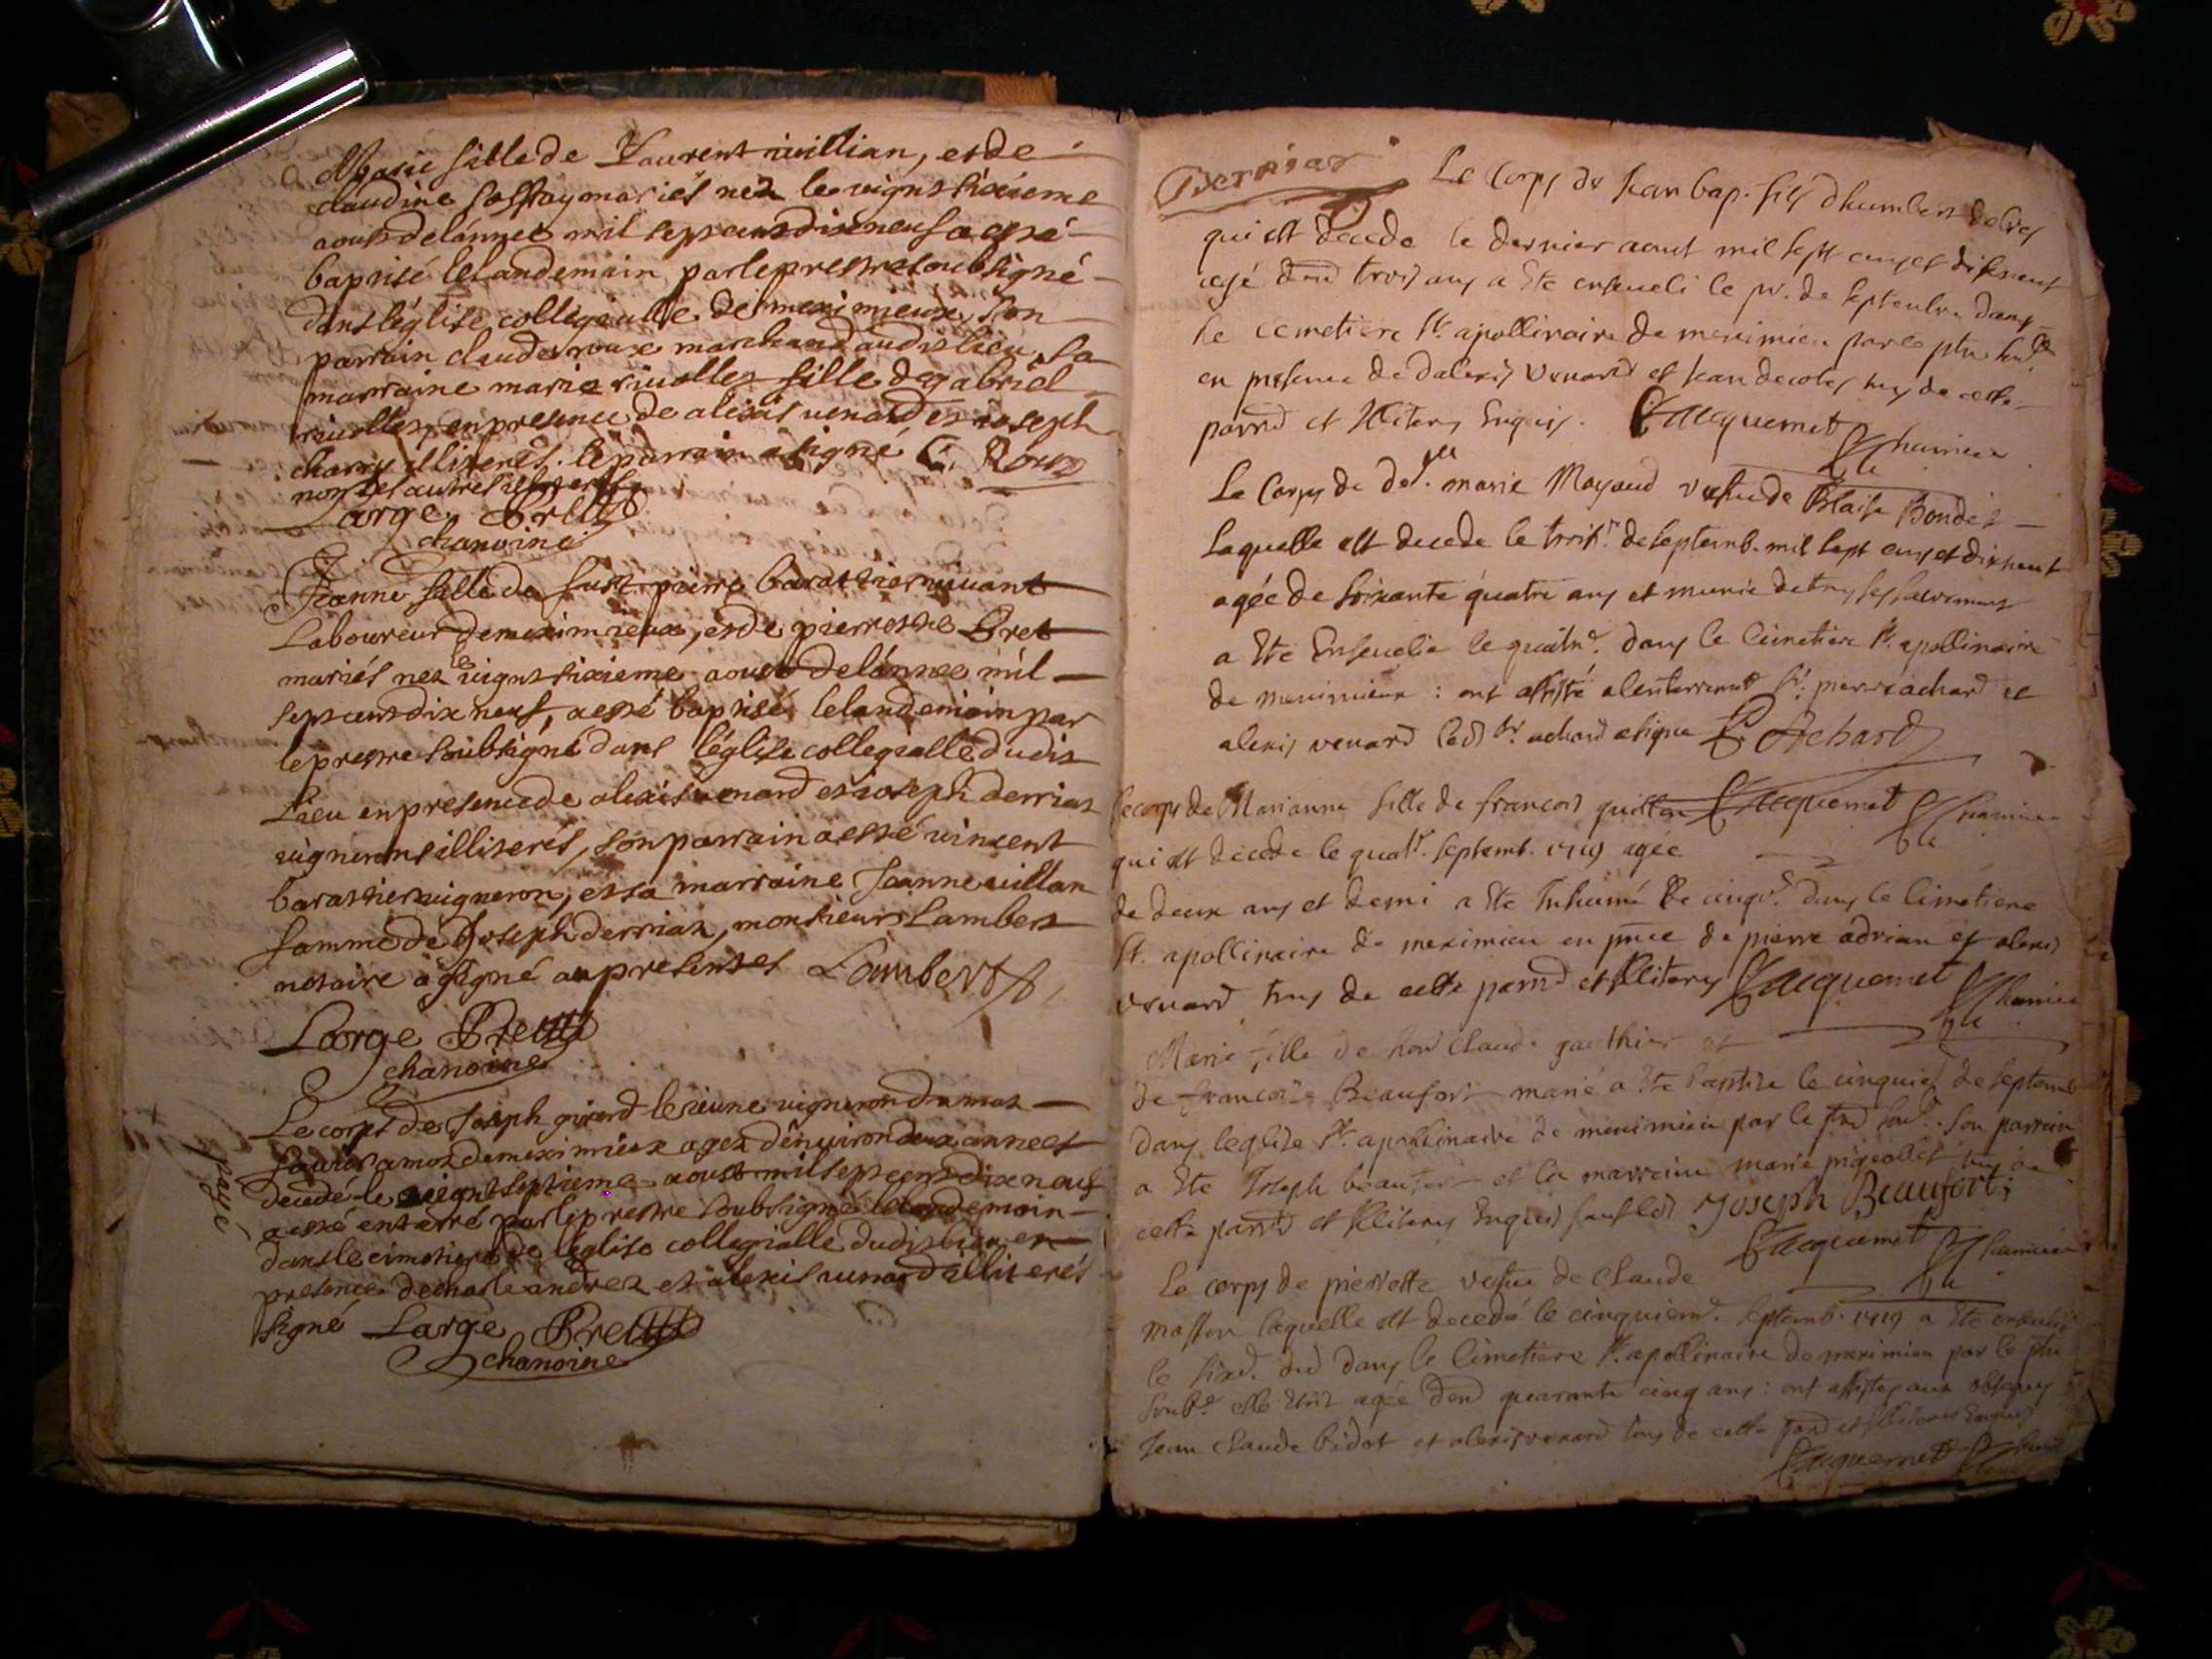 Marie fille de Laurent uillian, et de
claudine mariés nez le vignt sixieme
aoust delánnee mil sept cens dix neuf a esté
baptisé lelandemain par le prestre soubsigné
dans léglise collegialle de meximieux, son
parrain claude roux marchand audit lieu, sa
marraine marie riuollez fille de gabriel
riuollez, en presence de alexis uenard et ioseph
charry illiterés. le parrain a signé C. Roux
non les autres
Large Bret
chanoine
Jeanne fille de fust pierre barattier uiuant
Laboureur de meximieux, et de pierrette Bret
mariés nez le vignt sixieme aoust de lánnee mil
sept cens dix neuf, a esté baptisé lelandemain par
le prestre soubsigné dans léglise collegialle dudit
Lieu en presence de alexis uenard et ioseph derriaz
uignerons illiterés, son parrain a esté uincent
barattier uigneron, et sa marraine Jeanne uillan
famme de Joseph derriaz, monsieur Lambert
notaire a signé au presentes Lambert
Large Bret
chanoine
payé
Le corps de Joseph girard le ieune uigneron
de meximieux agez dénuiron deux annees
decedé le vignt septieme aoust mil sept cens dix neuf
a esté enterré par le prestre soubsigné lelandemain
dans le cimetiere de léglise collegialle dudit lieu en
presence de charle andrez et alexis uenard illiterés
signé Large Bret
chanoine
Derriaz
Le Corps de Jean bap. fils dhumbert
qui est decede le dernier aout mil sept cens et dixneuf
agé denv trois ans a ete enseveli le pr. de septembre dans
le cemetiere St. apollinaire de meximieu par le ptre
en presence de dalexis venard et Jean decoles tms de cette
parrd et Illiterés Enquis. Jacquemet
Le Corps de dell. marie Mayaud vefve de Blaise Bondet
laquelle est decede le trois. de septemb. mil sept cens et dixneuf
agée de soixante quatre ans et munie de tous ses sacremens
a ete Ensevelie le quatre. dans le cimetiere St. apollinaire
de meximieux : ont assisté a lenterrement Sr. pierre achard et
alexis venard led Sr. achard a signe P. Achard
Le corps de Marianne fille de francois guillon Jacquemet
qui est decede le quatr. septemb. 1719 agée
de deux ans et demi a ete Inhumé le cinq. dans le cimetiere
St. apollinaire de meximieu en pnce de pierre adrian et alexis
venard tms de cette parrd et Illiterés Jacquemet
Marie fille de hon Claude gauthier et
de francoise Beaufort marié a ete baptize le cinquie de septemb
dans leglise St. apollinaire de meximieu par le son parrein
a ete Joseph beaufort et la marraine marie pigeollet tms de
cette parrd et Illiterés Enquis sauf led Joseph Beaufort
Jacquemet
Le corps de pierrette vefve de Claude
Masson laquelle est decedé le cinquiem. septemb. 1719 a ete enseveli
le six. dud dans le Cimetiere St. apollinaire de meximieu par le ptre
soub. elle etoit agée denv quarante cinq ans : ont assistes aux obseques
Jean Claude bidot et alexis venard tous de cette parrd et Illiterés Enquis
Jacquemet